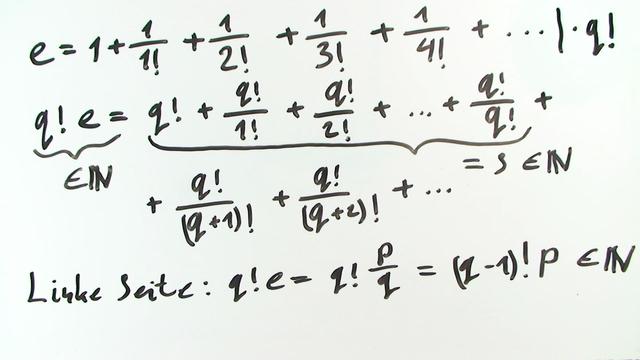 e = 1 + 1/1! + 1/2! + 1/3! + 1/4! + ... | · q!
q! e = q! + q!/1! + q!/2! + ... + q!/q! +
∈ ℕ = s ∈ ℕ
+ q!/(q+1)! + q!/(q+2)! + ...
Linke Seite: q! e = q! p/q = (q-1)! p ∈ ℕ